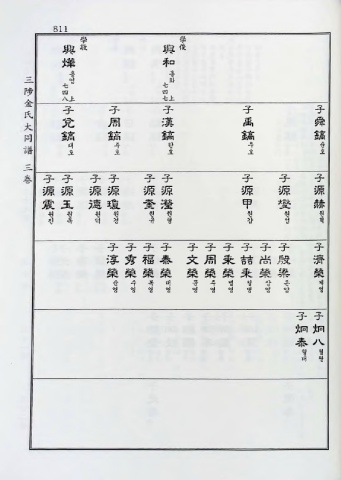 511
三陟金氏大同譜 三卷
學俊
興和 흥화 上七四七
學敬
興燁 흥엽 上七四八
子舜鎬 순호
子禹鎬 우호
子漢鎬 한호
子周鎬 주호
子兌鎬 태호
子源赫 원혁
子源燮 원섭
子源甲 원갑
子源瀅 원형
子源奎 원규
子源瓊 원경
子源德 원덕
子源玉 원옥
子源震 원진
子濟榮 제영
子殷梁 은양
子尚榮 상영
子喆秉
子秉榮 병영
子周榮 주영
子文榮 문영
子泰榮 태영
子福榮 복영
子秀榮 수영
子淳榮 순영
子炯八 형팔
子炯泰 형태